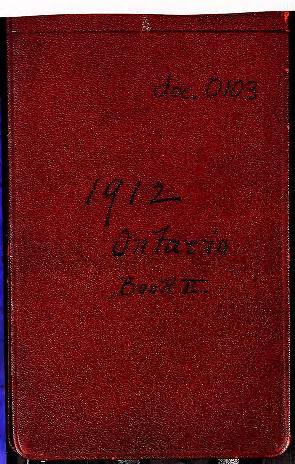 doc. 0103
1912
Ontario
Book II.